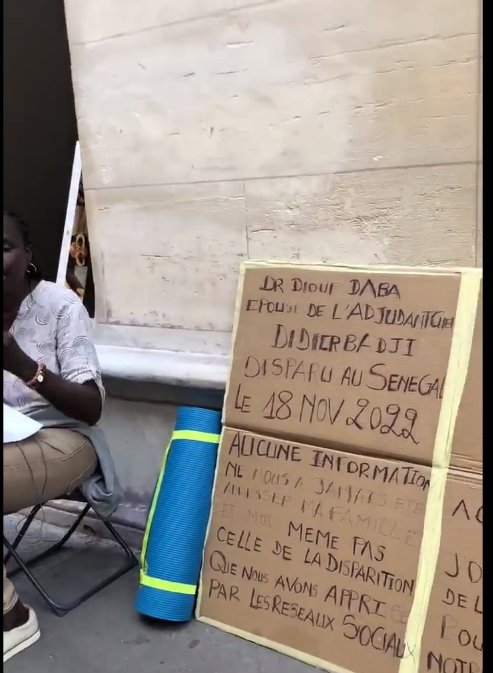 DR DIOUF DABA
EPOUSE DE L'ADJUDANTCHEF
DIDIER BADJI
DISPARU AU SENEGAL
LE 18 NOV 2022
AUCUNE INFORMATION
NE NOUS A JAMAIS ETE
MA FAMILLE
ET MOI MEME PAS
CELLE DE LA DISPARITION
QUE NOUS AVONS APPRISE
PAR LES RESEAUX SOCIAUX
J'O
DE L
POU
NOTR